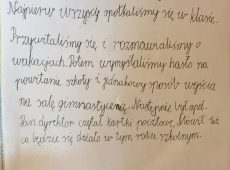 Najpierw wszyscy spotkaliśmy się w klasie.
Przywitaliśmy się i rozmawialiśmy o
wakacjach. Potem wymyślaliśmy hasło na
powitanie szkoły i jednakowy sposób wyjścia
na salę gimnastyczną. Następnie był apel.
Pan dyrektor czytał kartki pocztowe. Mówił też
co będzie się działo w tym roku szkolnym.